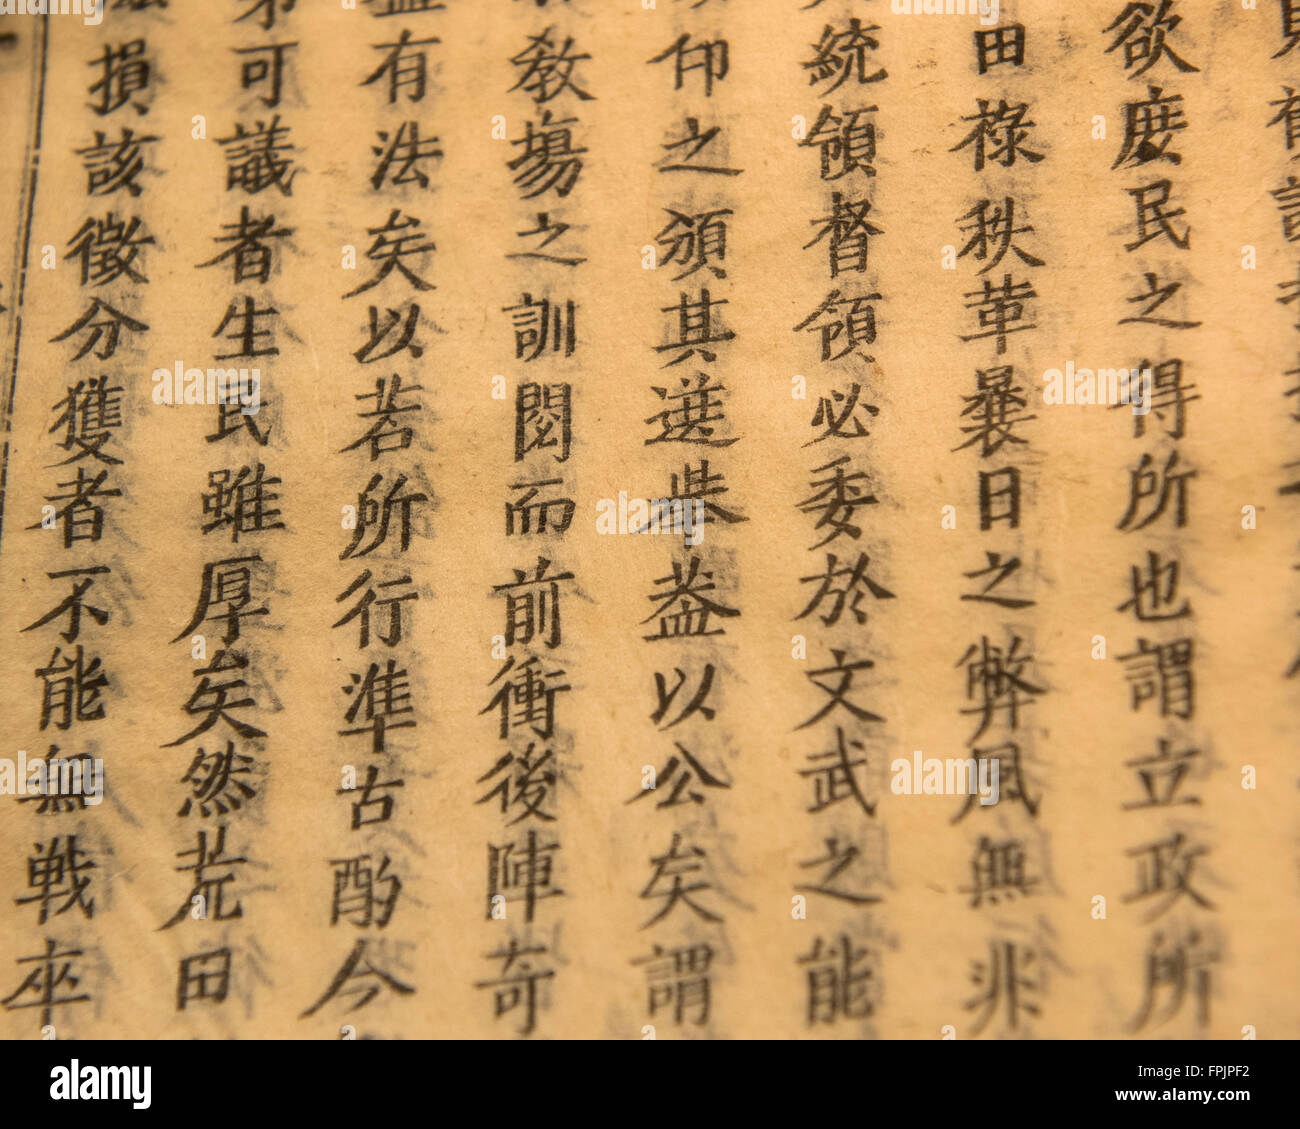 欲庶民之得所也謂立政所
田祿秩革㬥日之弊風無兆
統領督領必委於文武之能
仰之須其選舉蓋以公矣謂
教場之訓閱而前衝後陣奇
有法矣以若所行準古酌今
可議者生民雖厚矣然荒田
損該徵分獲者不能無戰卒
alamy stock photo
FPJPF2
www.alamy.com